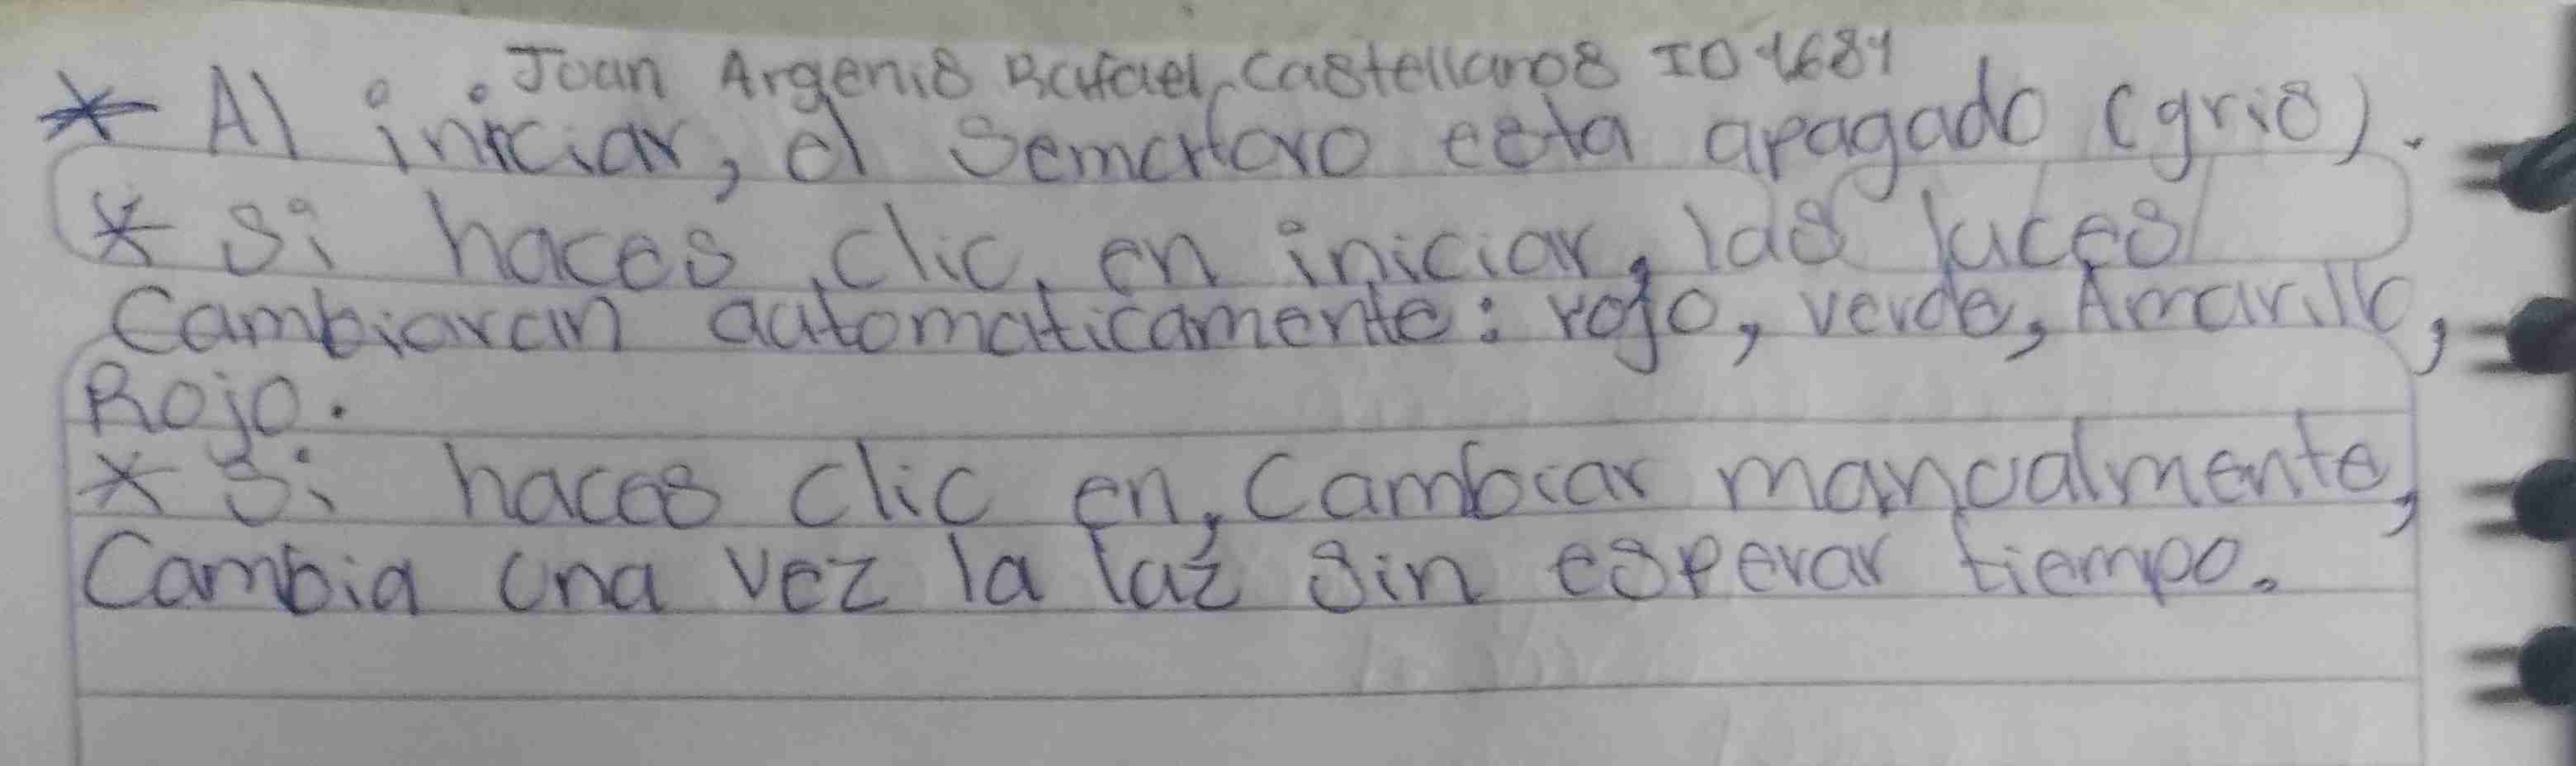 Joan Argenis Rafael Castellanos ID 1681
* Al iniciar, el semaforo esta apagado (gris).
* Si haces clic en iniciar, las luces
Cambiaran automaticamente: rojo, verde, Amarillo,
Rojo.
* Si haces clic en, Cambiar manualmente,
Cambia una vez la luz sin esperar tiempo.